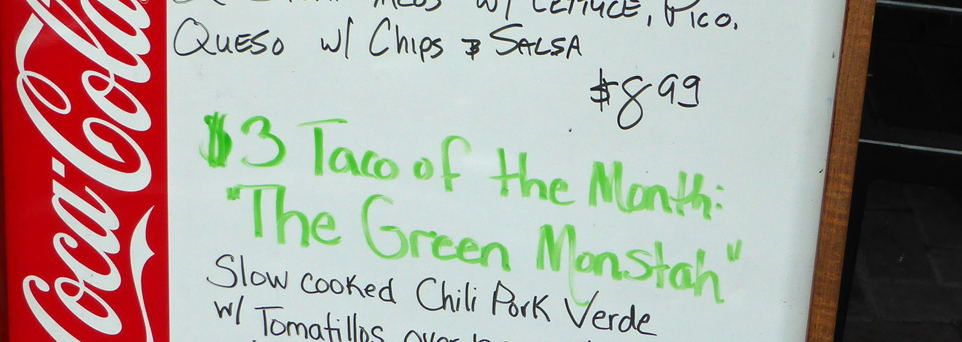 Tacos w/ Lettuce, Pico,
Queso w/ Chips & Salsa
$8.99
$3 Taco of the Month:
"The Green Monstah"
Slow cooked Chili Pork Verde
w/ Tomatillos over
Coca-Cola